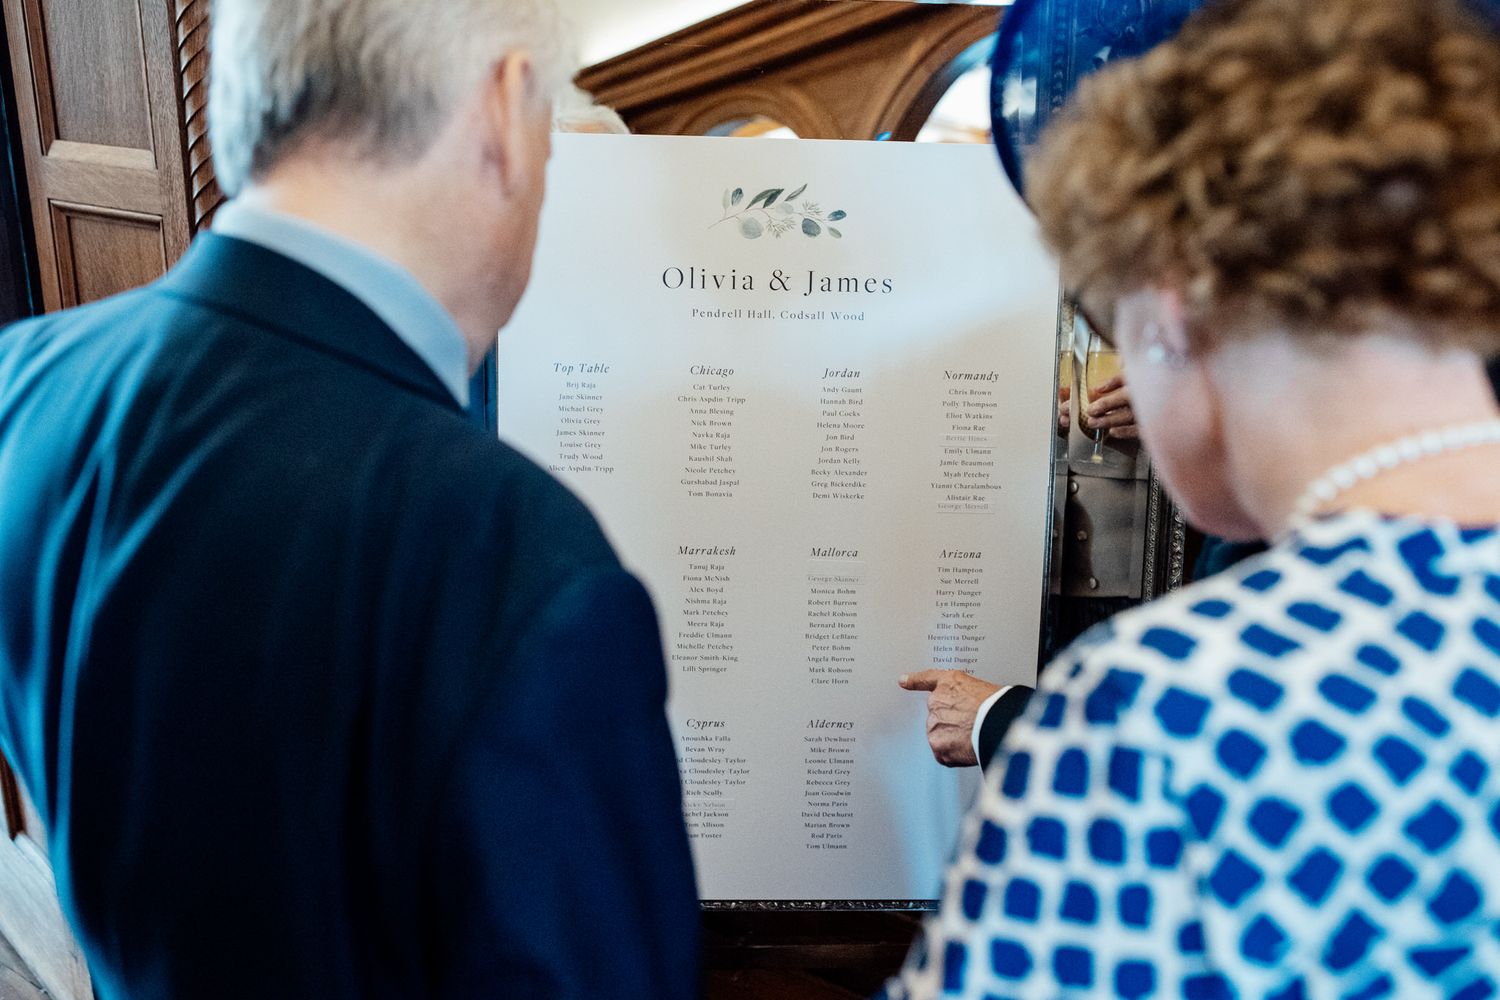 Olivia & James
Pendrell Hall, Codsall Wood
Top Table
Brij Raja
Jane Skinner
Michael Grey
Olivia Grey
James Skinner
Louise Grey
Trudy Wood
Alice Aspdin-Tripp
Chicago
Cat Turley
Chris Aspdin-Tripp
Anna Blesing
Nick Brown
Navka Raja
Mike Turley
Kaushil Shah
Nicole Petchey
Gurshabad Jaspal
Tom Bonavia
Jordan
Andy Gaunt
Hannah Bird
Paul Cocks
Helena Moore
Jon Bird
Jon Rogers
Jordan Kelly
Becky Alexander
Greg Bickerdike
Demi Wiskerke
Normandy
Chris Brown
Polly Thompson
Eliot Watkins
Fiona Rae
Bertie Hines
Emily Ulmann
Jamie Beaumont
Myah Petchey
Yianni Charalambous
Alistair Rae
George Merrell
Marrakesh
Tanuj Raja
Fiona McNish
Alex Boyd
Nishma Raja
Mark Petchey
Meera Raja
Freddie Ulmann
Michelle Petchey
Eleanor Smith-King
Lilli Springer
Mallorca
George Skinner
Monica Bohm
Robert Burrow
Rachel Robson
Bernard Horn
Bridget LeBlanc
Peter Bohm
Angela Burrow
Mark Robson
Clare Horn
Arizona
Tim Hampton
Sue Merrell
Harry Dunger
Lyn Hampton
Sarah Lee
Ellie Dunger
Henrietta Dunger
Helen Railton
David Dunger
Cyprus
Anoushka Falla
Bevan Wray
Cloudesley-Taylor
Cloudesley-Taylor
Cloudesley-Taylor
Rich Scully
Nicky Nelson
Rachel Jackson
Tom Allison
Foster
Alderney
Sarah Dewhurst
Mike Brown
Leonie Ulmann
Richard Grey
Rebecca Grey
Joan Goodwin
Norma Paris
David Dewhurst
Marian Brown
Rod Paris
Tom Ulmann